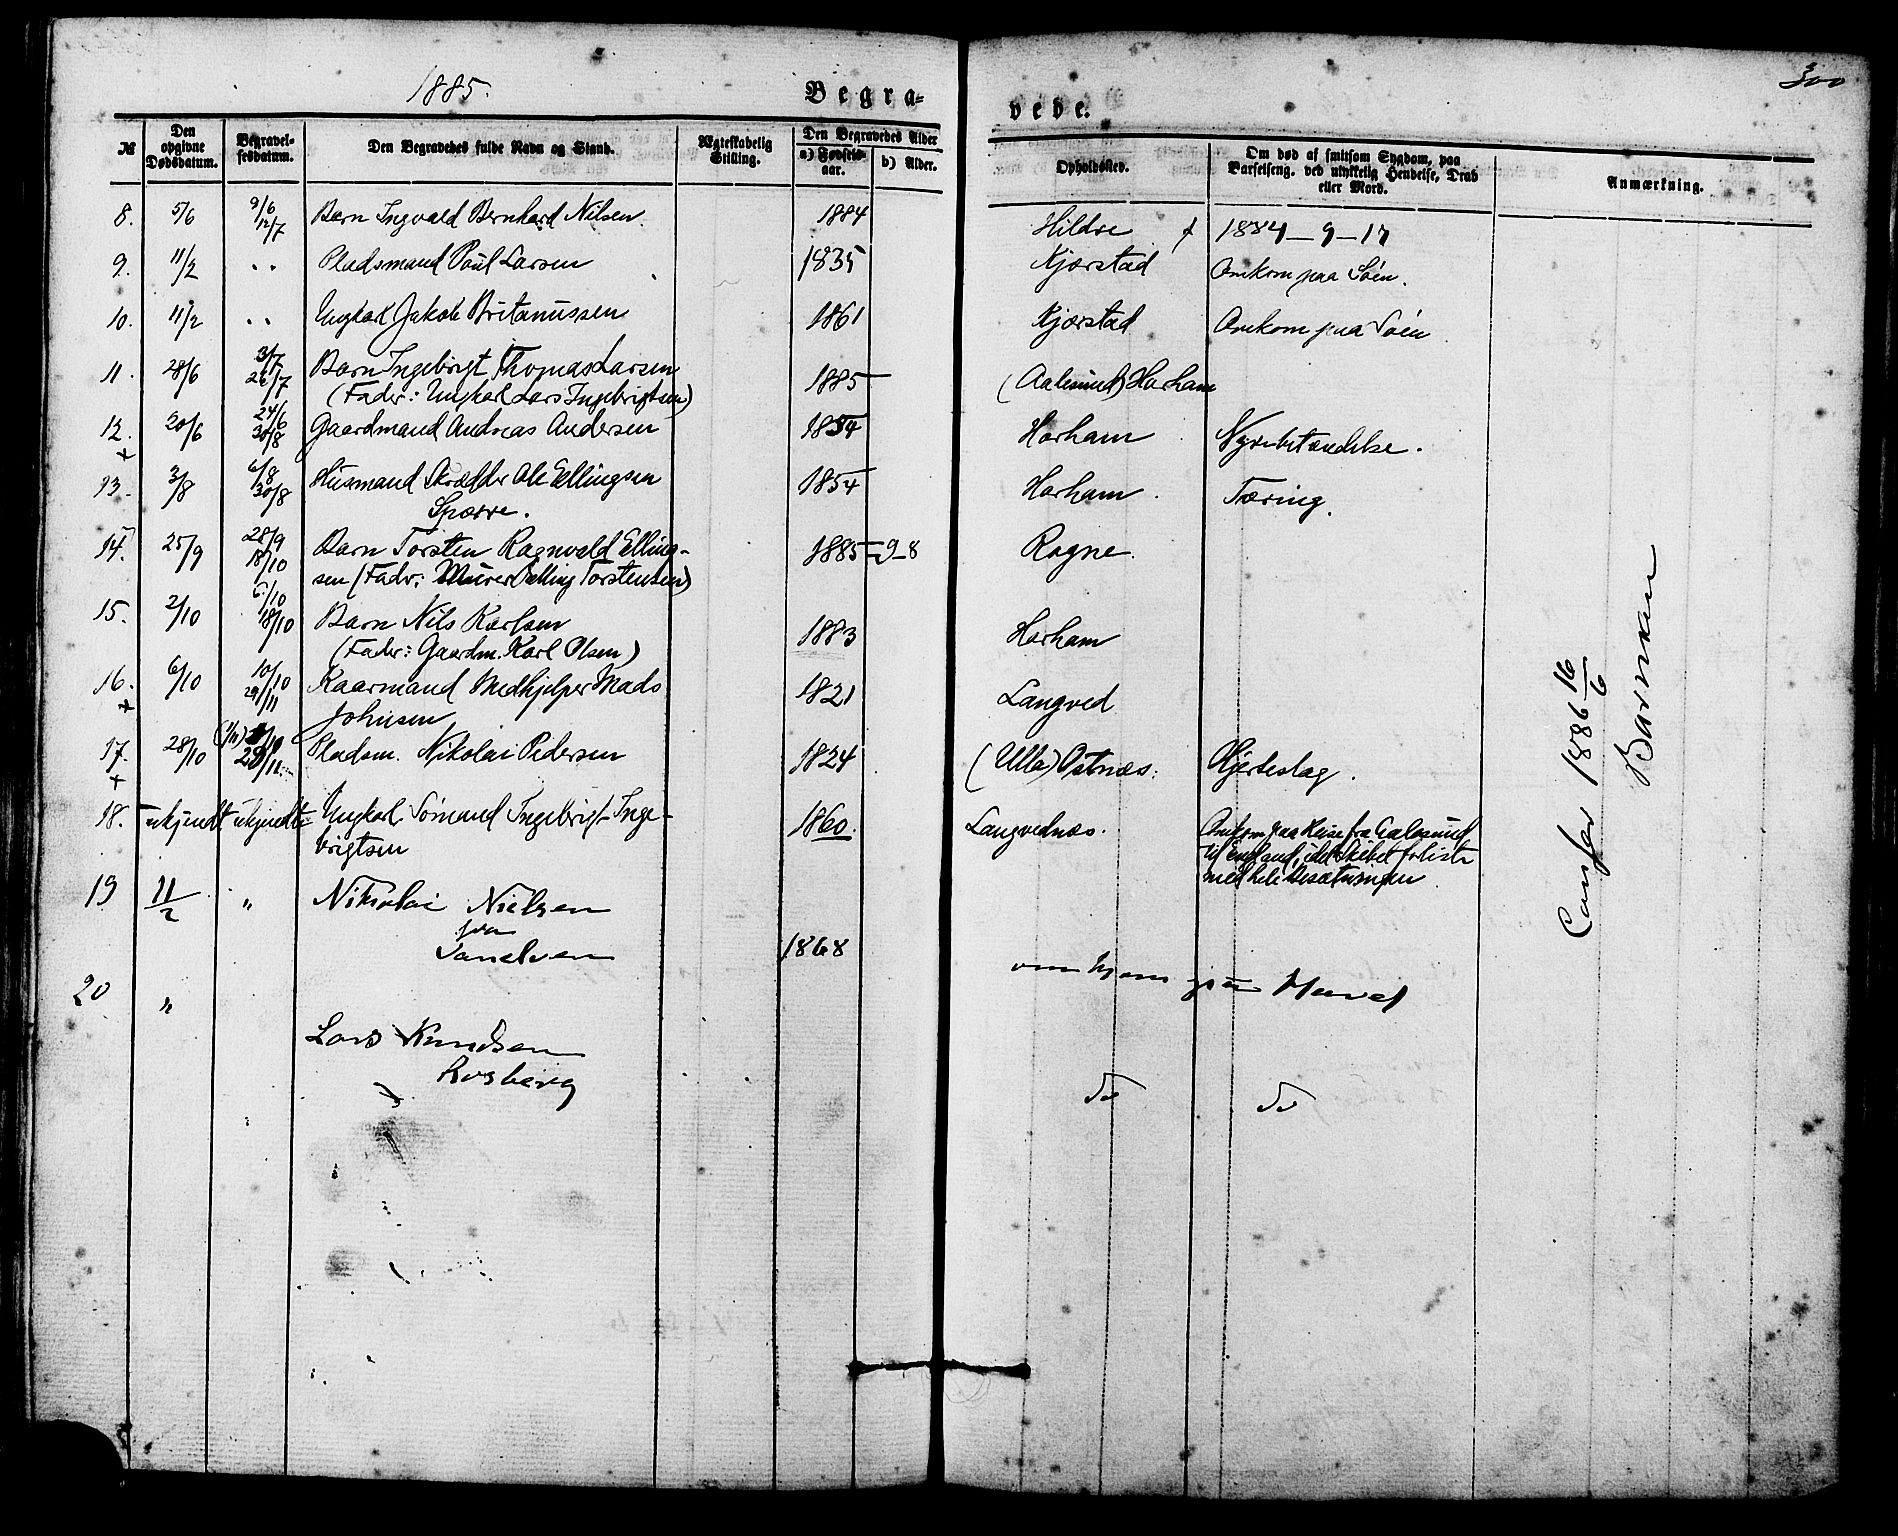 1885.
Begra-
vede.
300
№
Den opgivne Dødsdatum.
Begravelsesdatum.
Den Begravedes fulde Navn og Stand.
Ægteskabelig Stilling.
Den Begravedes Alder
a) Fødselsaar.
b) Alder.
Opholdssted.
Om død af smitsom Sygdom, paa Barselseng, ved ulykkelig Hendelse, Drab eller Mord.
Anmærkning.
8. 5/6 9/6 12/7 Barn Ingvald Bernhard Nilsen. 1884 Hildre 1884-9-17
9. 11/2 " Pladsmand Poul Larsen 1835 Kjærstad Omkom paa Søén.
10. 11/2 " Ungkarl Jakob Britanussen 1861 Kjærstad Omkom paa Søén
11. 28/6 3/7 26/7 Barn Ingebrigt Thomas Larsen
(Fader: Ungkarl Lars Ingebrigtsen) 1885 (Aalesund) Harham
12. 20/6 24/6 30/8 Gaardmand Andreas Andersen 1854 Harham Nyrebetændelse.
13. 3/8 6/8 30/8 Husmand Skrædder Ole Ellingsen
Sparre. 1854 Harham. Tæring.
14. 25/9 28/9 18/10 Barn Torsten Ragnvald Elling-
sen (Fader: Murer Elling Torstensen) 1885-9-8 Rogne.
15. 2/10 6/10 18/10 Barn Nils Karlsen
(Fader: Gaardm. Karl Olsen) 1883 Harham
16. 6/10 10/10 29/11 Kaarmand Medhjelper Mads
Johnsen 1821 Langved
17. 28/10 29/11 Pladsm. Nikolai Pedersen 1824 (Ulla) Østnæs. Hjerteslag.
18. ukjendt ukjendt Ungkarl Sømand Ingebrigt Inge-
brigtsen 1860. Langvednæs. Omkom paa Reise fra Aalesund
til England, idet Skibet forliste
med hele Besætningen
19 11/2 " Nikolai Nielsen
fra
1868 omkom paa Havet
20 "
Lars Knudsen
Rosberg
Do Do
Confer 1886 16/6